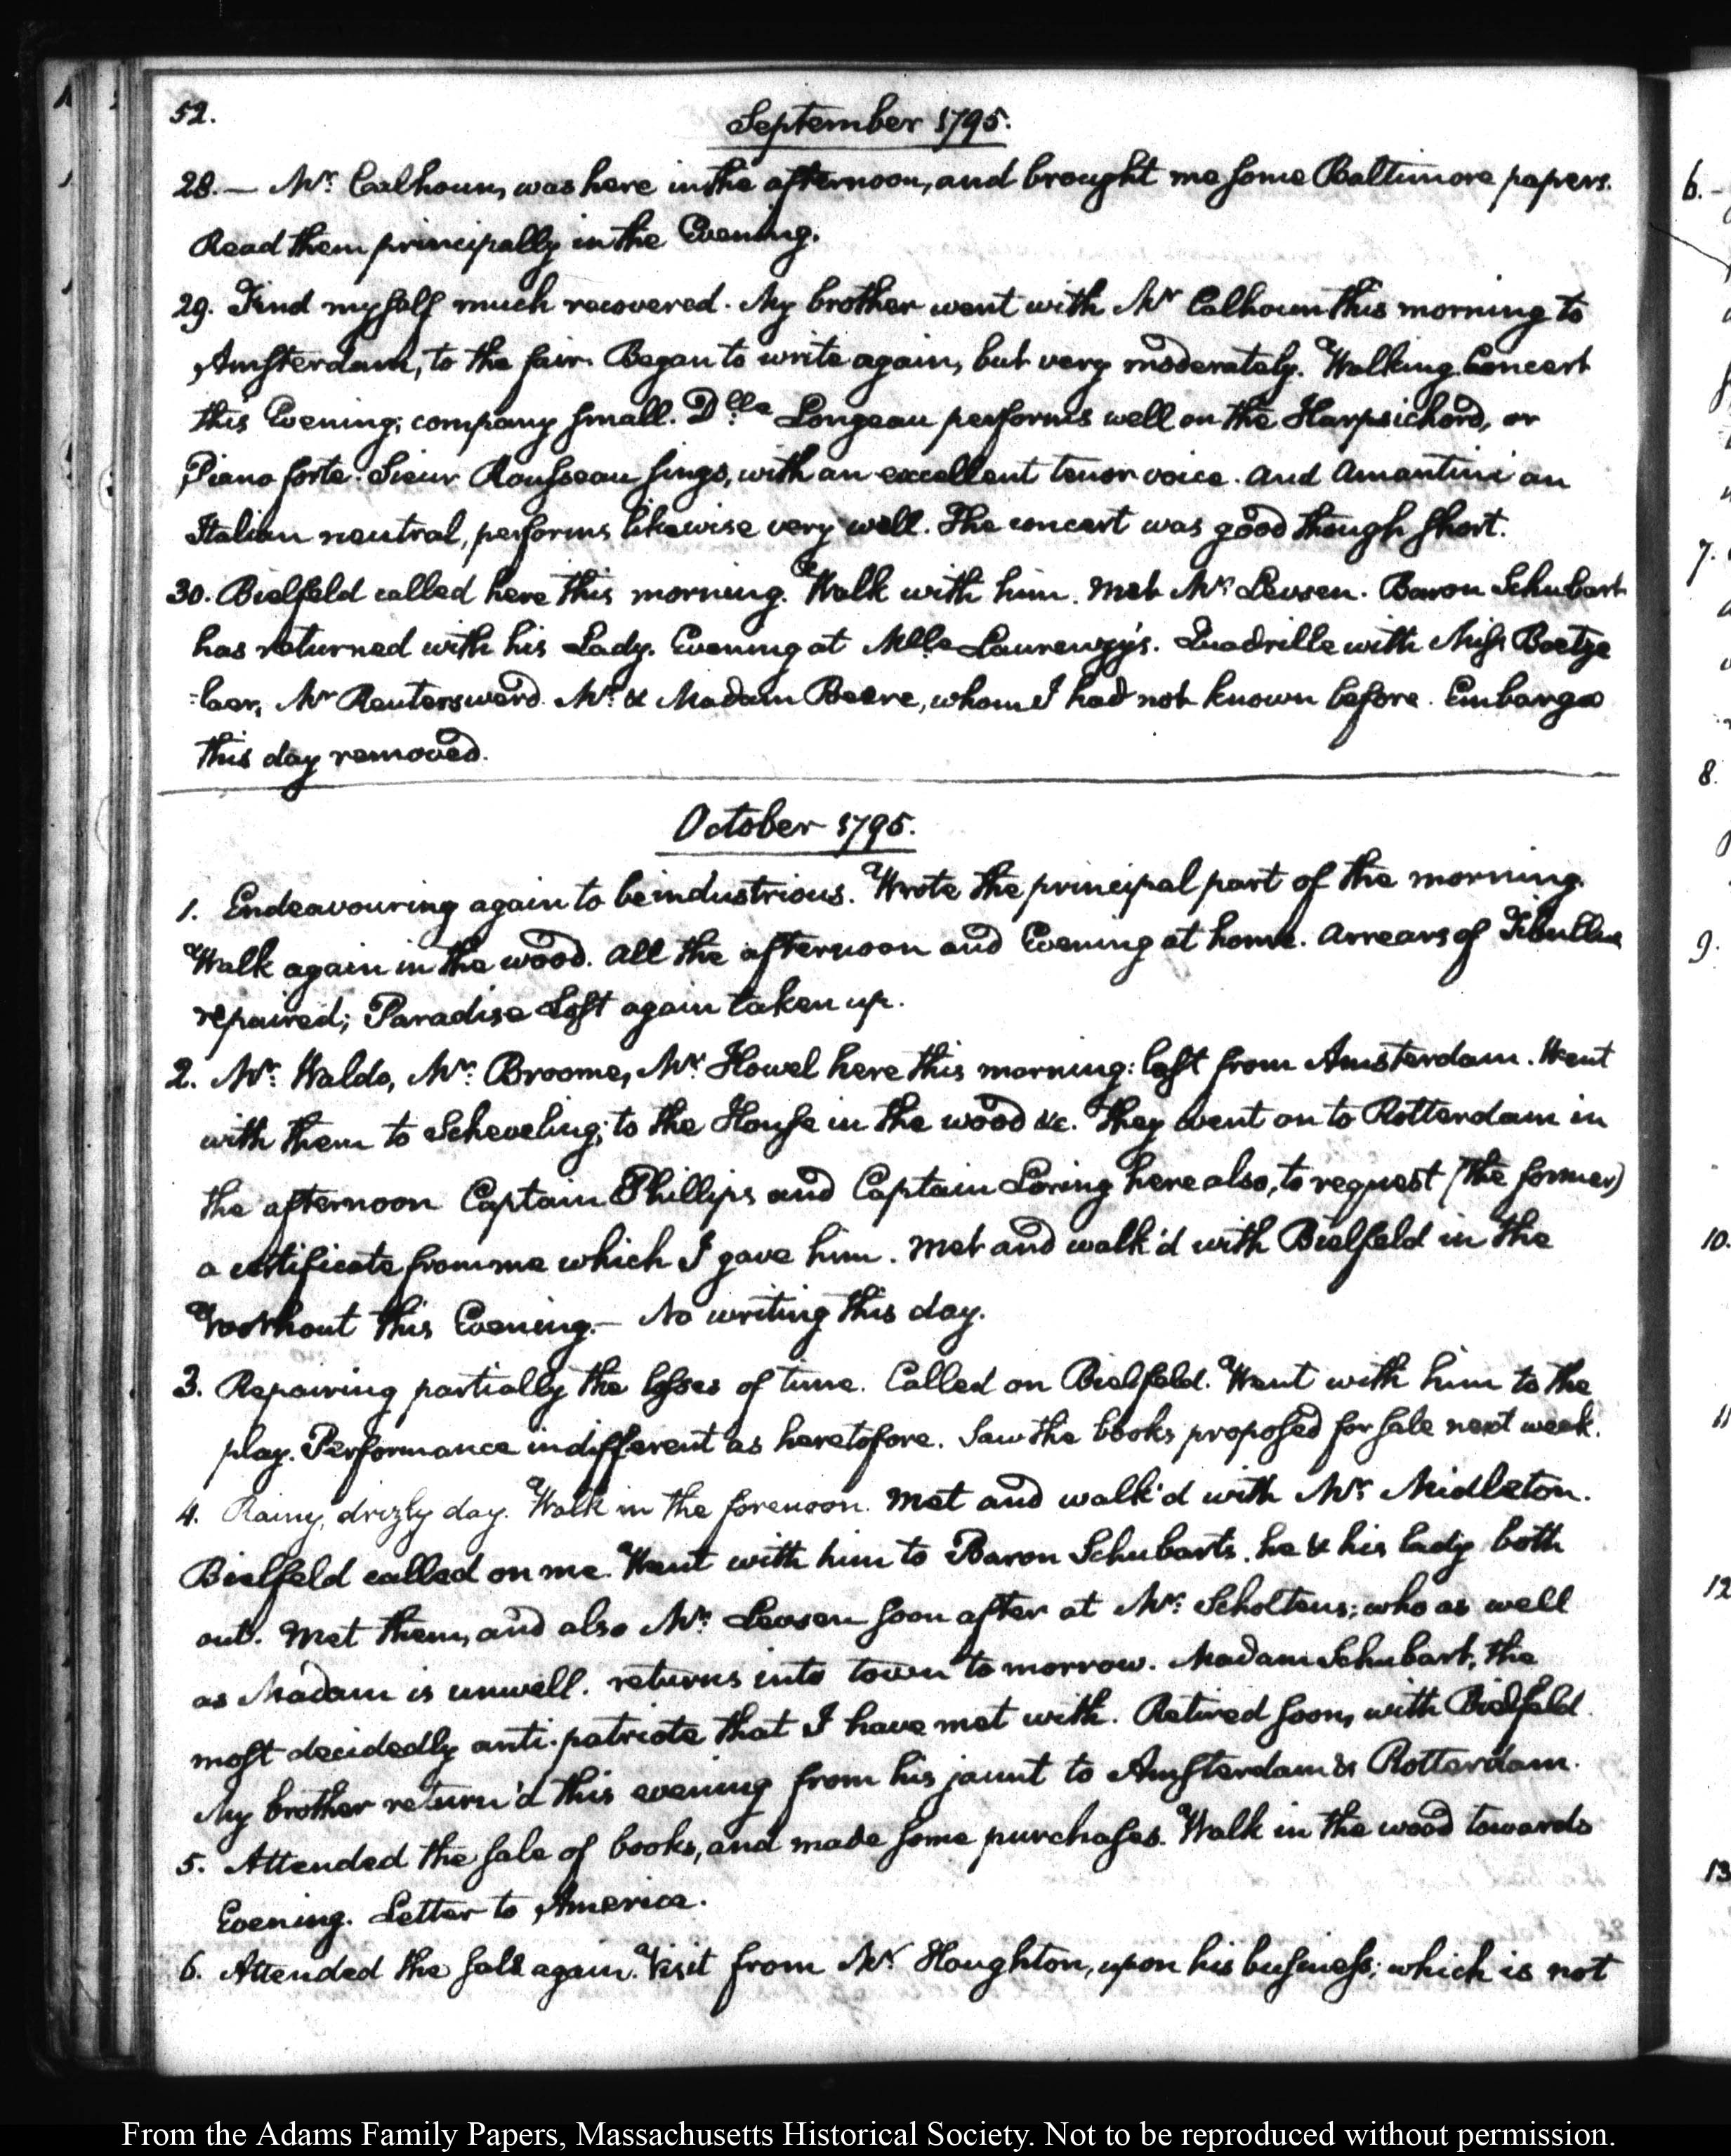 52.
September 1795.
28. — Mr. Calhoun, was here in the afternoon, and brought me some Baltimore papers.
Read them principally in the Evening.
29. Find myself much recovered. My brother went with Mr Calhoun this morning to
Amsterdam, to the fair. Began to write again, but very moderately. Walking Concert
this Evening; company small. Dlle Longeau performs well on the Harpsichord, or
Piano forte. Sieur Rousseau sings, with an excellent tenor voice. And Amantini an
Italian neutral, performs likewise very well. The concert was good though short.
30. Bielfeld called here this morning. Walk with him. Met Mr. Levsen. Baron Schubart
has returned with his Lady. Evening at Mlle Laurenzy's. Quadrille with Miss Boetze
=laer, Mr Reutersward. Mr. & Madam Beere, whom I had not known before. Embargo
this day removed.
October 1795.
1. Endeavouring again to be industrious. Wrote the principal part of the morning.
Walk again in the wood. All the afternoon and Evening at home. Arrears of Tibullus
repaired; Paradise Lost again taken up.
2. Mr. Waldo, Mr. Broome, Mr. Howel here this morning: last from Amsterdam. Went
with them to Scheveling; to the House in the wood &c. They went on to Rotterdam in
the afternoon Captain Phillips and Captain Loring here also, to request (the former)
a certificate from me which I gave him. Met and walk'd with Bielfeld in the
Voorhout this Evening.— No writing this day.
3. Repairing partially the losses of time. Called on Bielfeld. Went with him to the
play. Performance indifferent as heretofore. Saw the books proposed for sale next week.
4. Rainy, drizly day. Walk in the forenoon. Met and walk'd with Mr. Midleton.
Bielfeld called on me. Went with him to Baron Schubarts. he & his lady both
out. Met them, and also Mr. Levsen soon after at Mr. Scholtens; who as well
as Madam is unwell. returns into town to morrow. Madam Schubart, the
most decidedly anti-patriote that I have met with. Retired soon, with Bielfeld.
My brother return'd this evening from his jaunt to Amsterdam & Rotterdam.
5. Attended the sale of books, and made some purchases. Walk in the wood towards
Evening. Letter to America.
6. Attended the sale again. Visit from Mr. Houghton, upon his business; which is not
6.
7.
8.
9.
10.
11
12
13
From the Adams Family Papers, Massachusetts Historical Society. Not to be reproduced without permission.